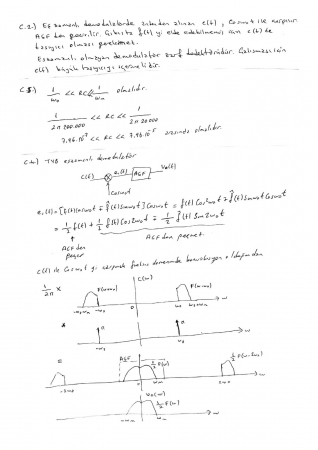 C.2.) Eş zamanlı demodülatörde girişden alınan c(t), Cosω₀t ile çarpılır
AGF den geçirilir. Çıkışta f(t) yi elde edebilmemiz için c(t) de
taşıyıcı olması gerekmez.
Eşzamanlı olmayan demodülatör zarf dedektörüdür. Çalışması için
c(t) büyük taşıyıcıyı içermelidir.
C.3.) 1/ω₀ << RC << 1/ωm olmalıdır.
1/2π 200.000 << RC << 1/2π 20000
7,96.10⁻⁷ << RC << 7,96.10⁻⁶ arasında olmalıdır.
C.4.) TYB eşzamanlı demodülatör
C(t) e₁(t) AGF V₀(t)
Cosω₀t
e₁(t) = [f(t)Cosω₀t ∓ f̂(t)Sinω₀t] Cosω₀t = f(t)Cos²ω₀t ∓ f̂(t)Sinω₀t Cosω₀t
= 1/2 f(t) + 1/2 f(t)Cos2ω₀t ∓ 1/2 f̂(t) Sin2ω₀t
AGF den geçer
AGF den geçmez
c(t) ile Cosω₀t yi çarpmak frekans domeninde konvolüsyon olduğundan
C(ω)
1/2π × F(ω+ω₀) F(ω-ω₀)
-ω₀ 0 ω₀ ω
* π π
-ω₀ 0 ω₀ ω
= AGF 1/2 F(ω)
-2ω₀ 0 ωm 2ω₀ ω
V₀(ω)
1/2 F(ω)
-ωm ωm ω